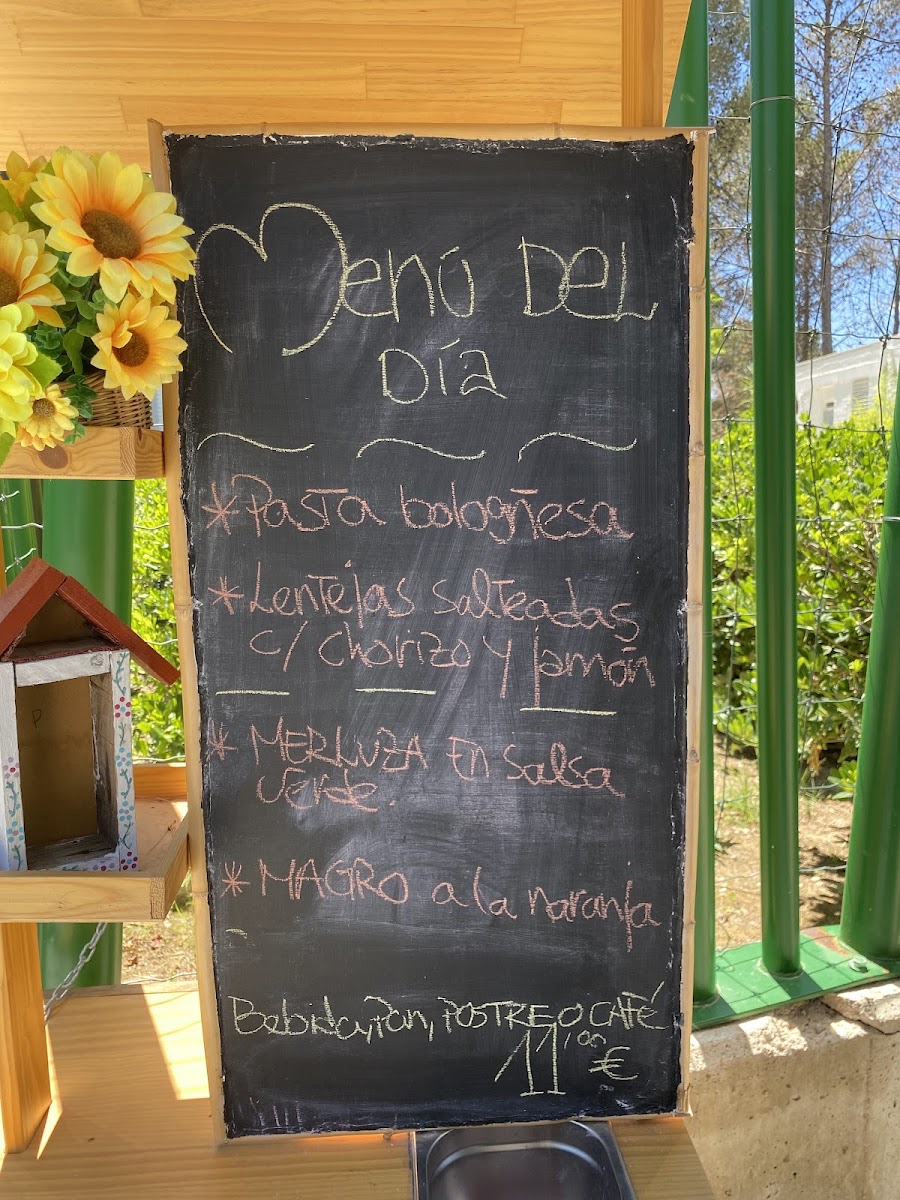 Menú Del
Día
* Pasta bologñesa
* Lentejas salteadas
c/ chorizo y jamón
* MERLUZA En Salsa
verde.
* MAGRO a la naranja
Bebida, Pan, POSTRE O CAFÉ
11'00 €